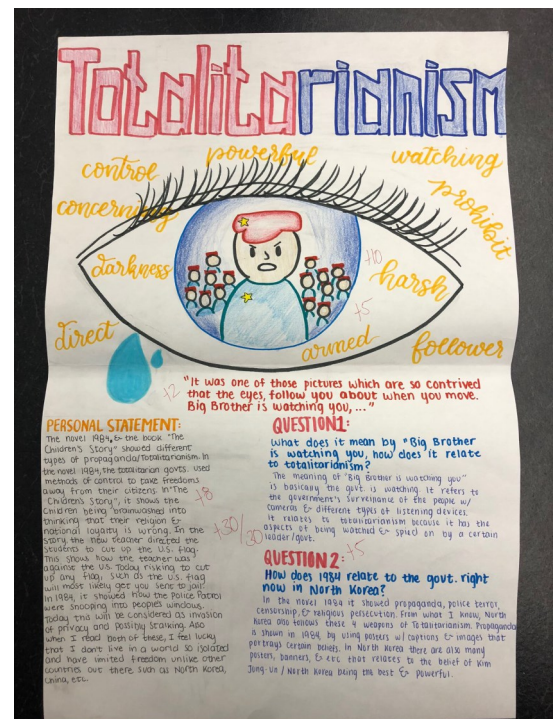 Totalitarianism
control
powerful
watching
concerning
prohibit
darkness
+10
harsh
+5
direct
armed
follower
+2
"It was one of those pictures which are so contrived
that the eyes, follow you about when you move.
Big Brother is watching you,..."
PERSONAL STATEMENT:
The novel 1984, & the book "The
Children's Story" showed different
types of propaganda/Totalitarianism. In
the novel 1984, the totalitarian govts. used
methods of control to take freedoms
away from their citizens. In "The
Childrens Story", it shows the
Children being brainwashed into
thinking that their religion &
national loyalty is wrong. In the
story the new teacher directed the
students to cut up the U.S. flag.
This shows how the teacher was
against the U.S. Today risking to cut
up any flag, such as the U.S. flag
will most likely get you sent to jail.
In 1984, it showed how the Police Patrol
were snooping into peoples windows.
Today this will be considered as invasion
of privacy and possibly stalking. Also
when I read both of these, I feel lucky
that I don't live in a world so isolated
and have limited freedom unlike other
countries out there such as North Korea,
China, etc.
+8
+30/30
QUESTION 1:
What does it mean by "Big Brother
is watching you, how does it relate
to totalitarianism?
The meaning of "Big Brother is watching you"
is basically the govt. is watching. It refers to
the government's surveilance of the people w/
cameras & different types of listening devices.
It relates to totalitarianism because it has the
aspects of being watched & spied on by a certain
leader/govt.
QUESTION 2:
+5
How does 1984 relate to the govt. right
now in North Korea?
In the novel 1984 it showed propaganda, police terror,
censorship, & religious persecution. From what I know, North
Korea also follows these 4 weapons of Totalitarianism. Propaganda
is shown in 1984, by using posters w/ captions & images that
portrays certain beliefs. In North Korea there are also many
posters, banners, & etc that relates to the belief of Kim
Jong-un / North Korea being the best & powerful.